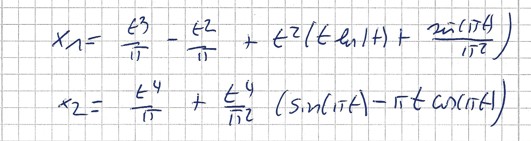 x₁ = t³/π − t²/π + t²(t ln|t| + sin(πt)/π²)
x₂ = t⁴/π + t⁴/π² (sin(πt) − πt cos(πt))